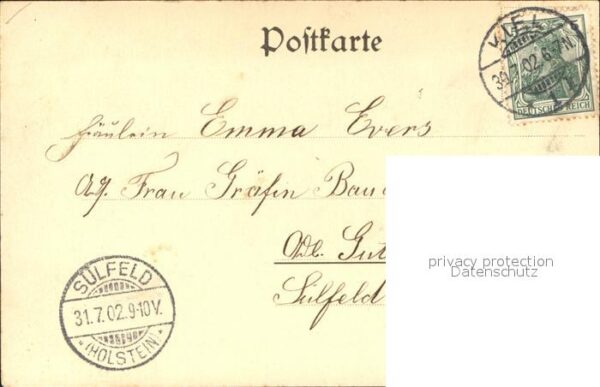 Postkarte
KIEL
30.7.02.6-7N.
5
DEUTSCHES REICH
Fräulein Emma Evers
Frau Gräfin Baud
Adl. Gut
Sülfeld
privacy protection
Datenschutz
SÜLFELD
31.7.02.9-10V.
(HOLSTEIN)